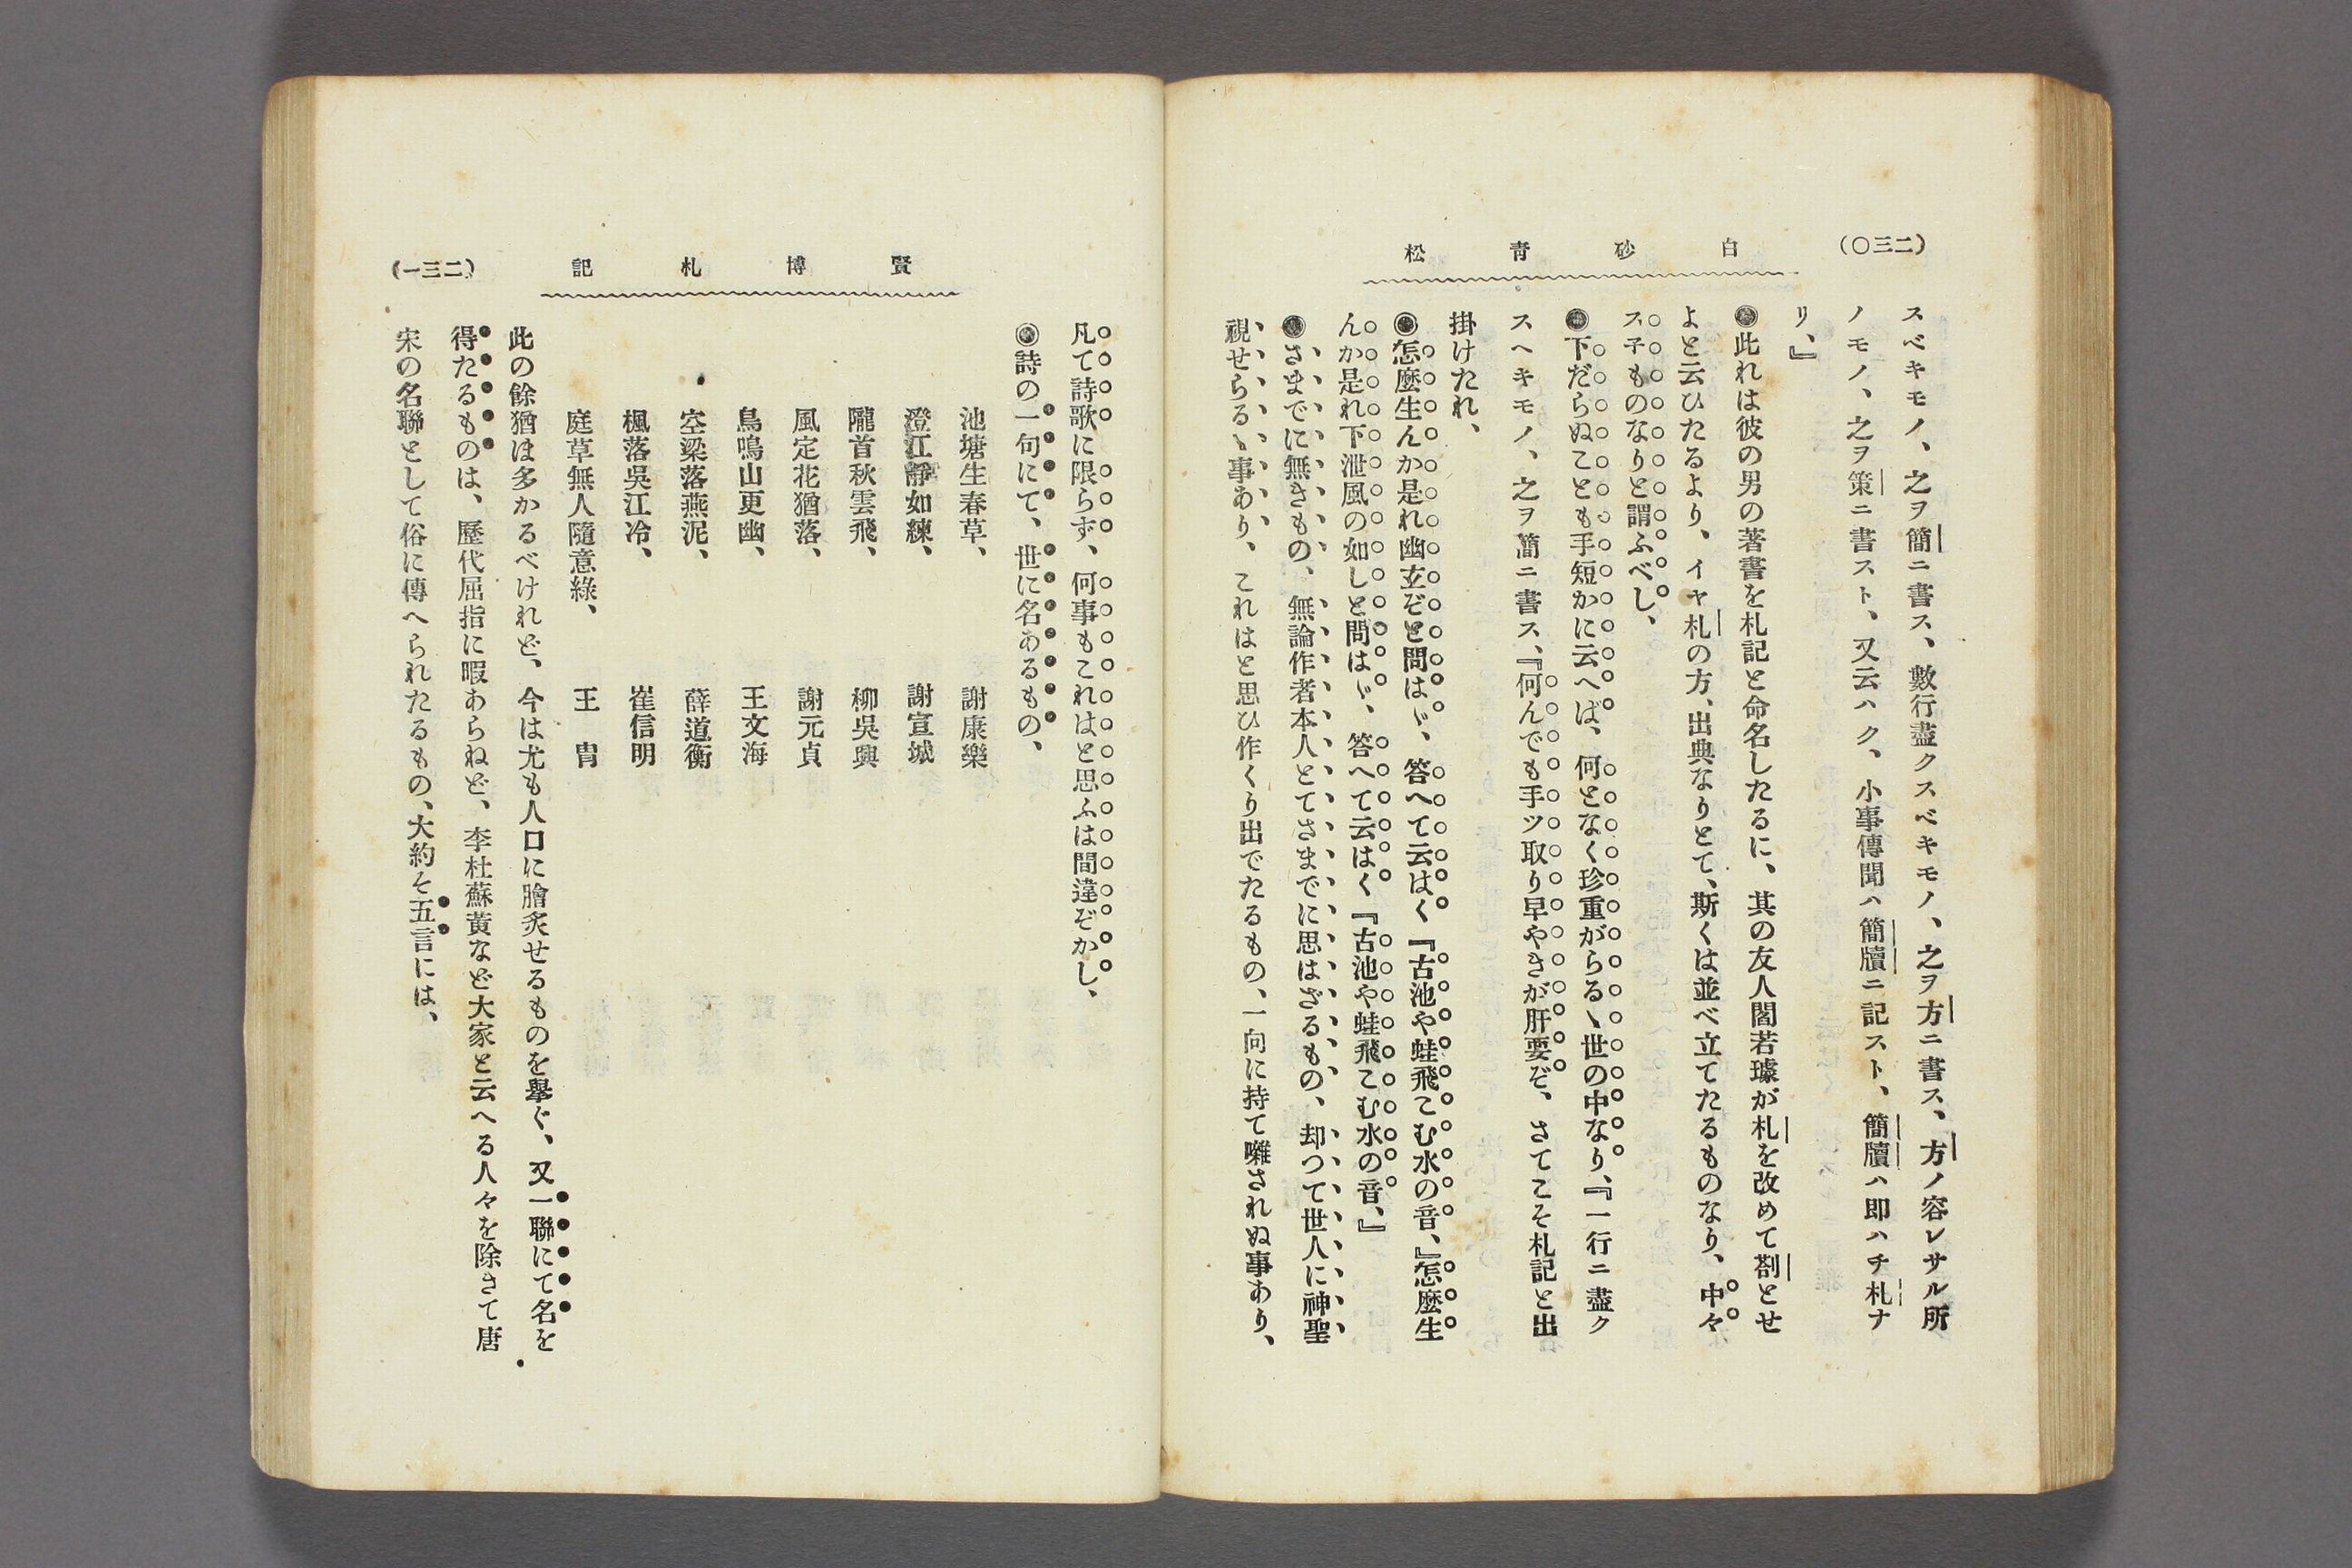 (二三〇)
白砂青松
スベキモノ、之ヲ簡ニ書ス、數行盡クスベキモノ、之ヲ方ニ書ス、方ノ容レサル所
ノモノ、之ヲ策ニ書スト、又云ハク、小事傳聞ハ簡牘ニ記スト、簡牘ハ即ハチ札ナ
リ、』
◉此れは彼の男の著書を札記と命名したるに、其の友人閻若璩が札を改めて剳とせ
よと云ひたるより、イヤ札の方、出典なりとて、斯くは並べ立てたるものなり、中々
ス子ものなりと謂ふべし、
◉下だらぬことも手短かに云へば、何となく珍重がらるゝ世の中なり、『一行ニ盡ク
スヘキモノ、之ヲ簡ニ書ス、『何んでも手ツ取り早やきが肝要ぞ、さてこそ札記と出
掛けたれ、
◉怎麼生んか是れ幽玄ぞと問はゞ、答へて云はく『古池や蛙飛こむ水の音、』怎麼生
んか是れ下泄風の如しと問はゞ、答へて云はく『古池や蛙飛こむ水の音、』
◉さまでに無きもの、無論作者本人とてさまでに思はざるもの、却つて世人に神聖
視せらるゝ事あり、これはと思ひ作くり出でたるもの、一向に持て囃されぬ事あり、
賢博札記
(二三一)
凡て詩歌に限らず、何事もこれはと思ふは間違ぞかし、
◉詩の一句にて、世に名あるもの、
池塘生春草、　謝康樂
澄江靜如練、　謝宣城
隴首秋雲飛、　柳吳興
風定花猶落、　謝元貞
鳥鳴山更幽、　王文海
空梁落燕泥、　薛道衡
楓落吳江冷、　崔信明
庭草無人隨意綠、　王冑
此の餘猶ほ多かるべけれど、今は尤も人口に膾炙せるものを擧ぐ、又一聯にて名を
得たるものは、歷代屈指に暇あらねど、李杜蘇黃など大家と云へる人々を除きて唐
宋の名聯として俗に傳へられたるもの、大約そ五言には、